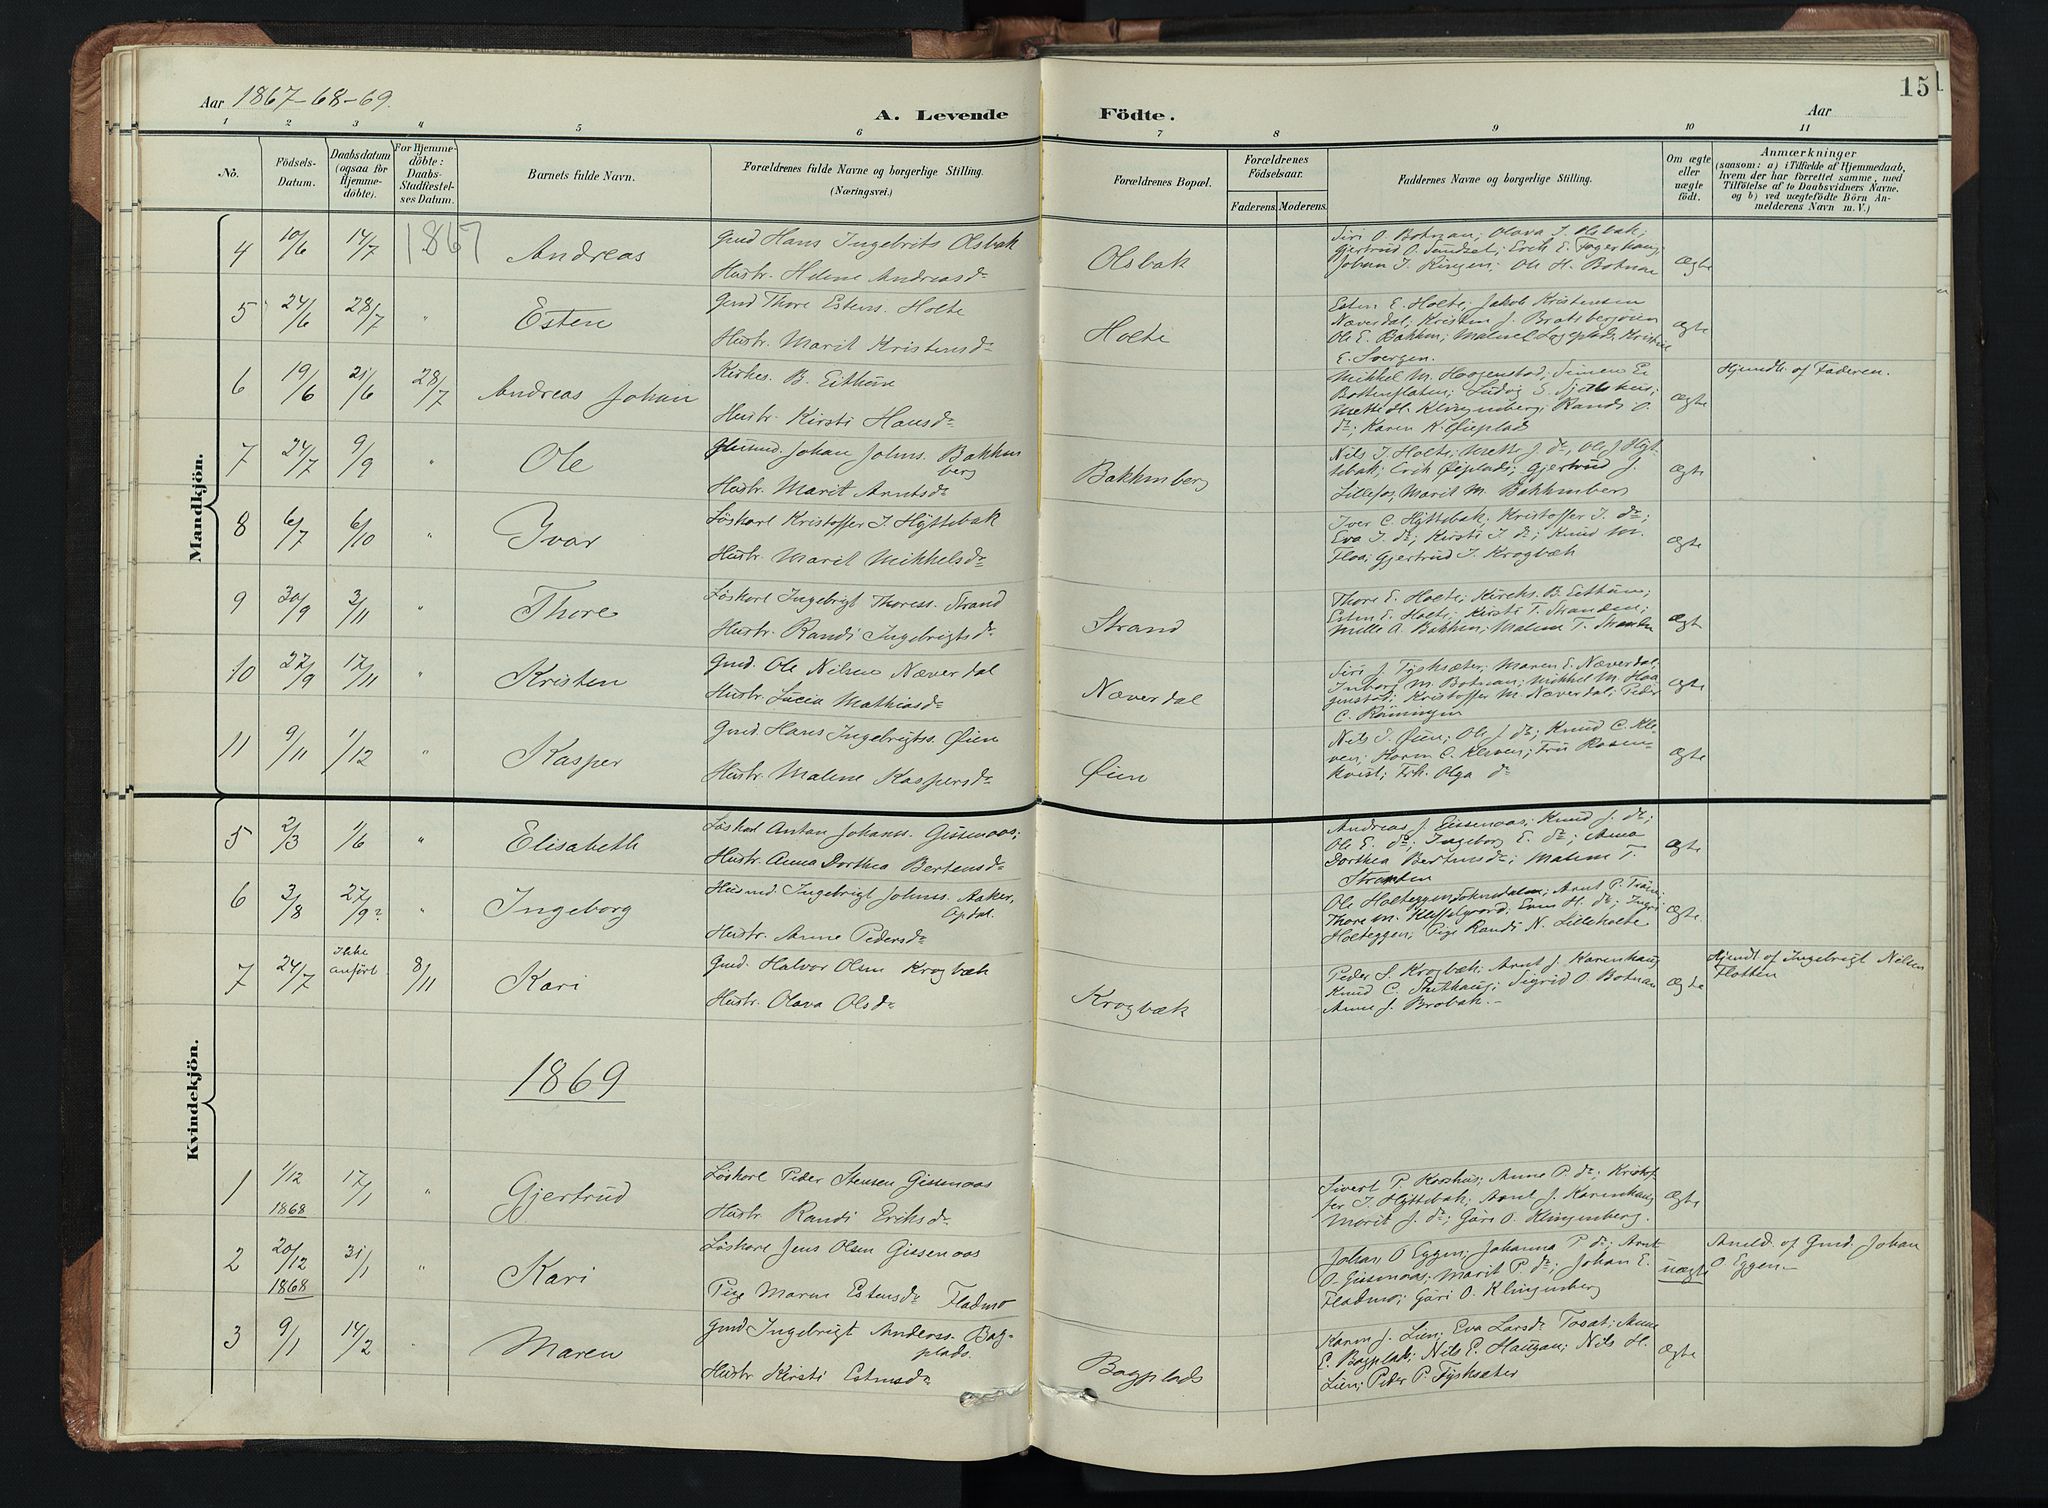 Aar 1867-68-69.
A. Levende Födte.
Aar
15
1 2 3 4 5 6 7 8 9 10 11
No.
Födsels-Datum.
Daabsdatum (ogsaa for Hjemme-döbte).
For Hjemme-döbte: Daabs-Stadfæstel-ses Datum.
Barnets fulde Navn.
Forældrenes fulde Navne og borgerlige Stilling.
(Næringsvei.)
Forældrenes Bopæl.
Forældrenes Födselsaar.
Faderens. Moderens.
Faddernes Navne og borgerlige Stilling.
Om ægte eller uægte födt.
Anmærkninger
(saasom: a) i Tilfælde af Hjemmedaab,
hvem der har forrettet samme, med
Tilföielse af to Daabsvidners Navne.
og b) ved uægtefödte Börn An-
melderens Navn m. V.)
Mandkjön.
4 10/6 14/7 1867 Andreas
Gmd Hans Ingebrits Olsbak
Hustr. Helene Andreasdr
Olsbak
Siri O. Botnan; Olava J. Olsbak;
Gjertrud O. Sundset; Erik E. Fagerhaug;
Johan J. Ringen; Ole H. Botnan
Ægte
5 24/6 28/7 " Esten
Gmd Thore Estens. Holte
Hustr. Marit Kristensdr
Holte
Esten E. Holte; Jakob Kristensen
Næverdal; Kristen J. Bratsbergören
Ole E. Bakken; Kristine
E. Svergen.
Ægte
6 19/6 21/6 28/7 Andreas Johan
Kirkes. B. Eithun
Hustr. Kirsti Hansdr
Mikkel M. Haagenstad; Simen E.
Bottenflaten; Ludvig
Mette H. Klingenberg; Randi O.
dr; Karen K. Øieplad
Ægte
Hjemdt. af Faderen.
7 24/7 9/9 " Ole
Husmd. Johan Johns. Bakken
berg
Hustr. Marit Arntsdr
Bakkenberg
Nils J. Holte; Mette J. do, Ole J. Hyt-
tebak; Erik Øieplads; Gjertrud J.
Lillefos, Marit M. Bakkenberg
Ægte
8 6/7 6/10 " Ivar
Löskarl Kristoffer I. Hyttebak
Hustr. Marit Mikkelsdr
Iver C. Hyttebak; Kristoffer I. do;
Eva I. do; Kirsti I. do; Knud M.
Floa; Gjertrud I. Krogbæk
Ægte
9 30/9 3/11 " Thore
Löskarl Ingebrigt Thoress. Strand
Hustr. Randi Ingebrigtsdr
Strand
Thore E. Holte; Kirches. B. Eithun;
Esten E. Holte; Kirsti T. Stranden;
Mille A. Bakken; Malene T. Stranden
Ægte
10 27/9 17/11 " Kristen
Gmd. Ole Nilsen Næverdal
Hustr. Lucia Mathiasdr
Næverdal
Siri J. Tysksæter; Maren E. Næverdal;
Inborg M. Botnan; Mikkel M. Haa
genstad; Kristoffer M. Næverdal; Peder
C. Rönningen
Ægte
11 9/11 1/12 " Kasper
Gmd. Hans Ingebrigtss. Øien
Hustr. Malene Kaspersdr
Øien
Nils I. Øien; Ole J. do; Knud C. Kle-
ven; Karen C. Kleven; Fru Rosen-
kvist; Frk. Olga do
Ægte
Kvindekjön.
5 2/3 1/6 " Elisabeth
Löskarl Anton Johann. Gissenaas;
Hustr. Anna Dorthea Berntsdr
Andreas J. Gissenaas; Knud J. do;
Ole E. do; Ingeborg E. do; Anna
Dorthea Berntsendr; Malene T.
Stranden
Ægte
6 3/8 27/9? " Ingeborg
Husmd. Ingebrigt Johnss. Asker,
Opdal.
Hustr. Anne Pedersdr
Ole Holteggen Arnt P.
Thore M. Even H. do;
Holteggen; Pige Randi N. Lilleholte
Ægte.
7 24/7 Ikke anført 8/11 Kari
Gmd. Halvor Olsen Krogbæk
Hustr. Olava Olsdr
Krogbæk
Peder S. Krogbæk; Arnt J. Karenhaug
Knud C. Sigrid O. Botnan
Anne J. Brobak. -
Ægte
Hjemdt af Ingebrigt Nilsen
Flotten
1869
1 1/12 1868 17/1 " Gjertrud
Löskarl Peder Stensen Gissenaas
Hustr. Randi Eriksdr
Sivert P. Korshus; Anne P. do; Kristof-
fer I. Hyttebak; Arnt J. Karenhaug
Marit J. do; Guri O. Klingenberg.
Ægte
2 20/12 1868 31/1 " Kari
Löskarl Jens Olsen Gissenaas
Pige Maren Estensdr Fladmo
Johan O Eggen; Johanna P do; Arnt
O. Gissenaas; Marit P. do; Johan E.
Fladmo; Guri O. Klingenberg
uægte
Anmld. af Gmd. Johan
O. Eggen.
3 9/1 14/2 " Maren
Gmd Ingebrigt Anderss. Bag-
plads.
Hustr Kirsti Estensdr
Bagplads
Karen J. Lien; Eva Larsdr Tosat; Anne
E. Bagplads; Nils E. Haugan; Nils H.
Lien; Peder P. Tysksæter
Ægte